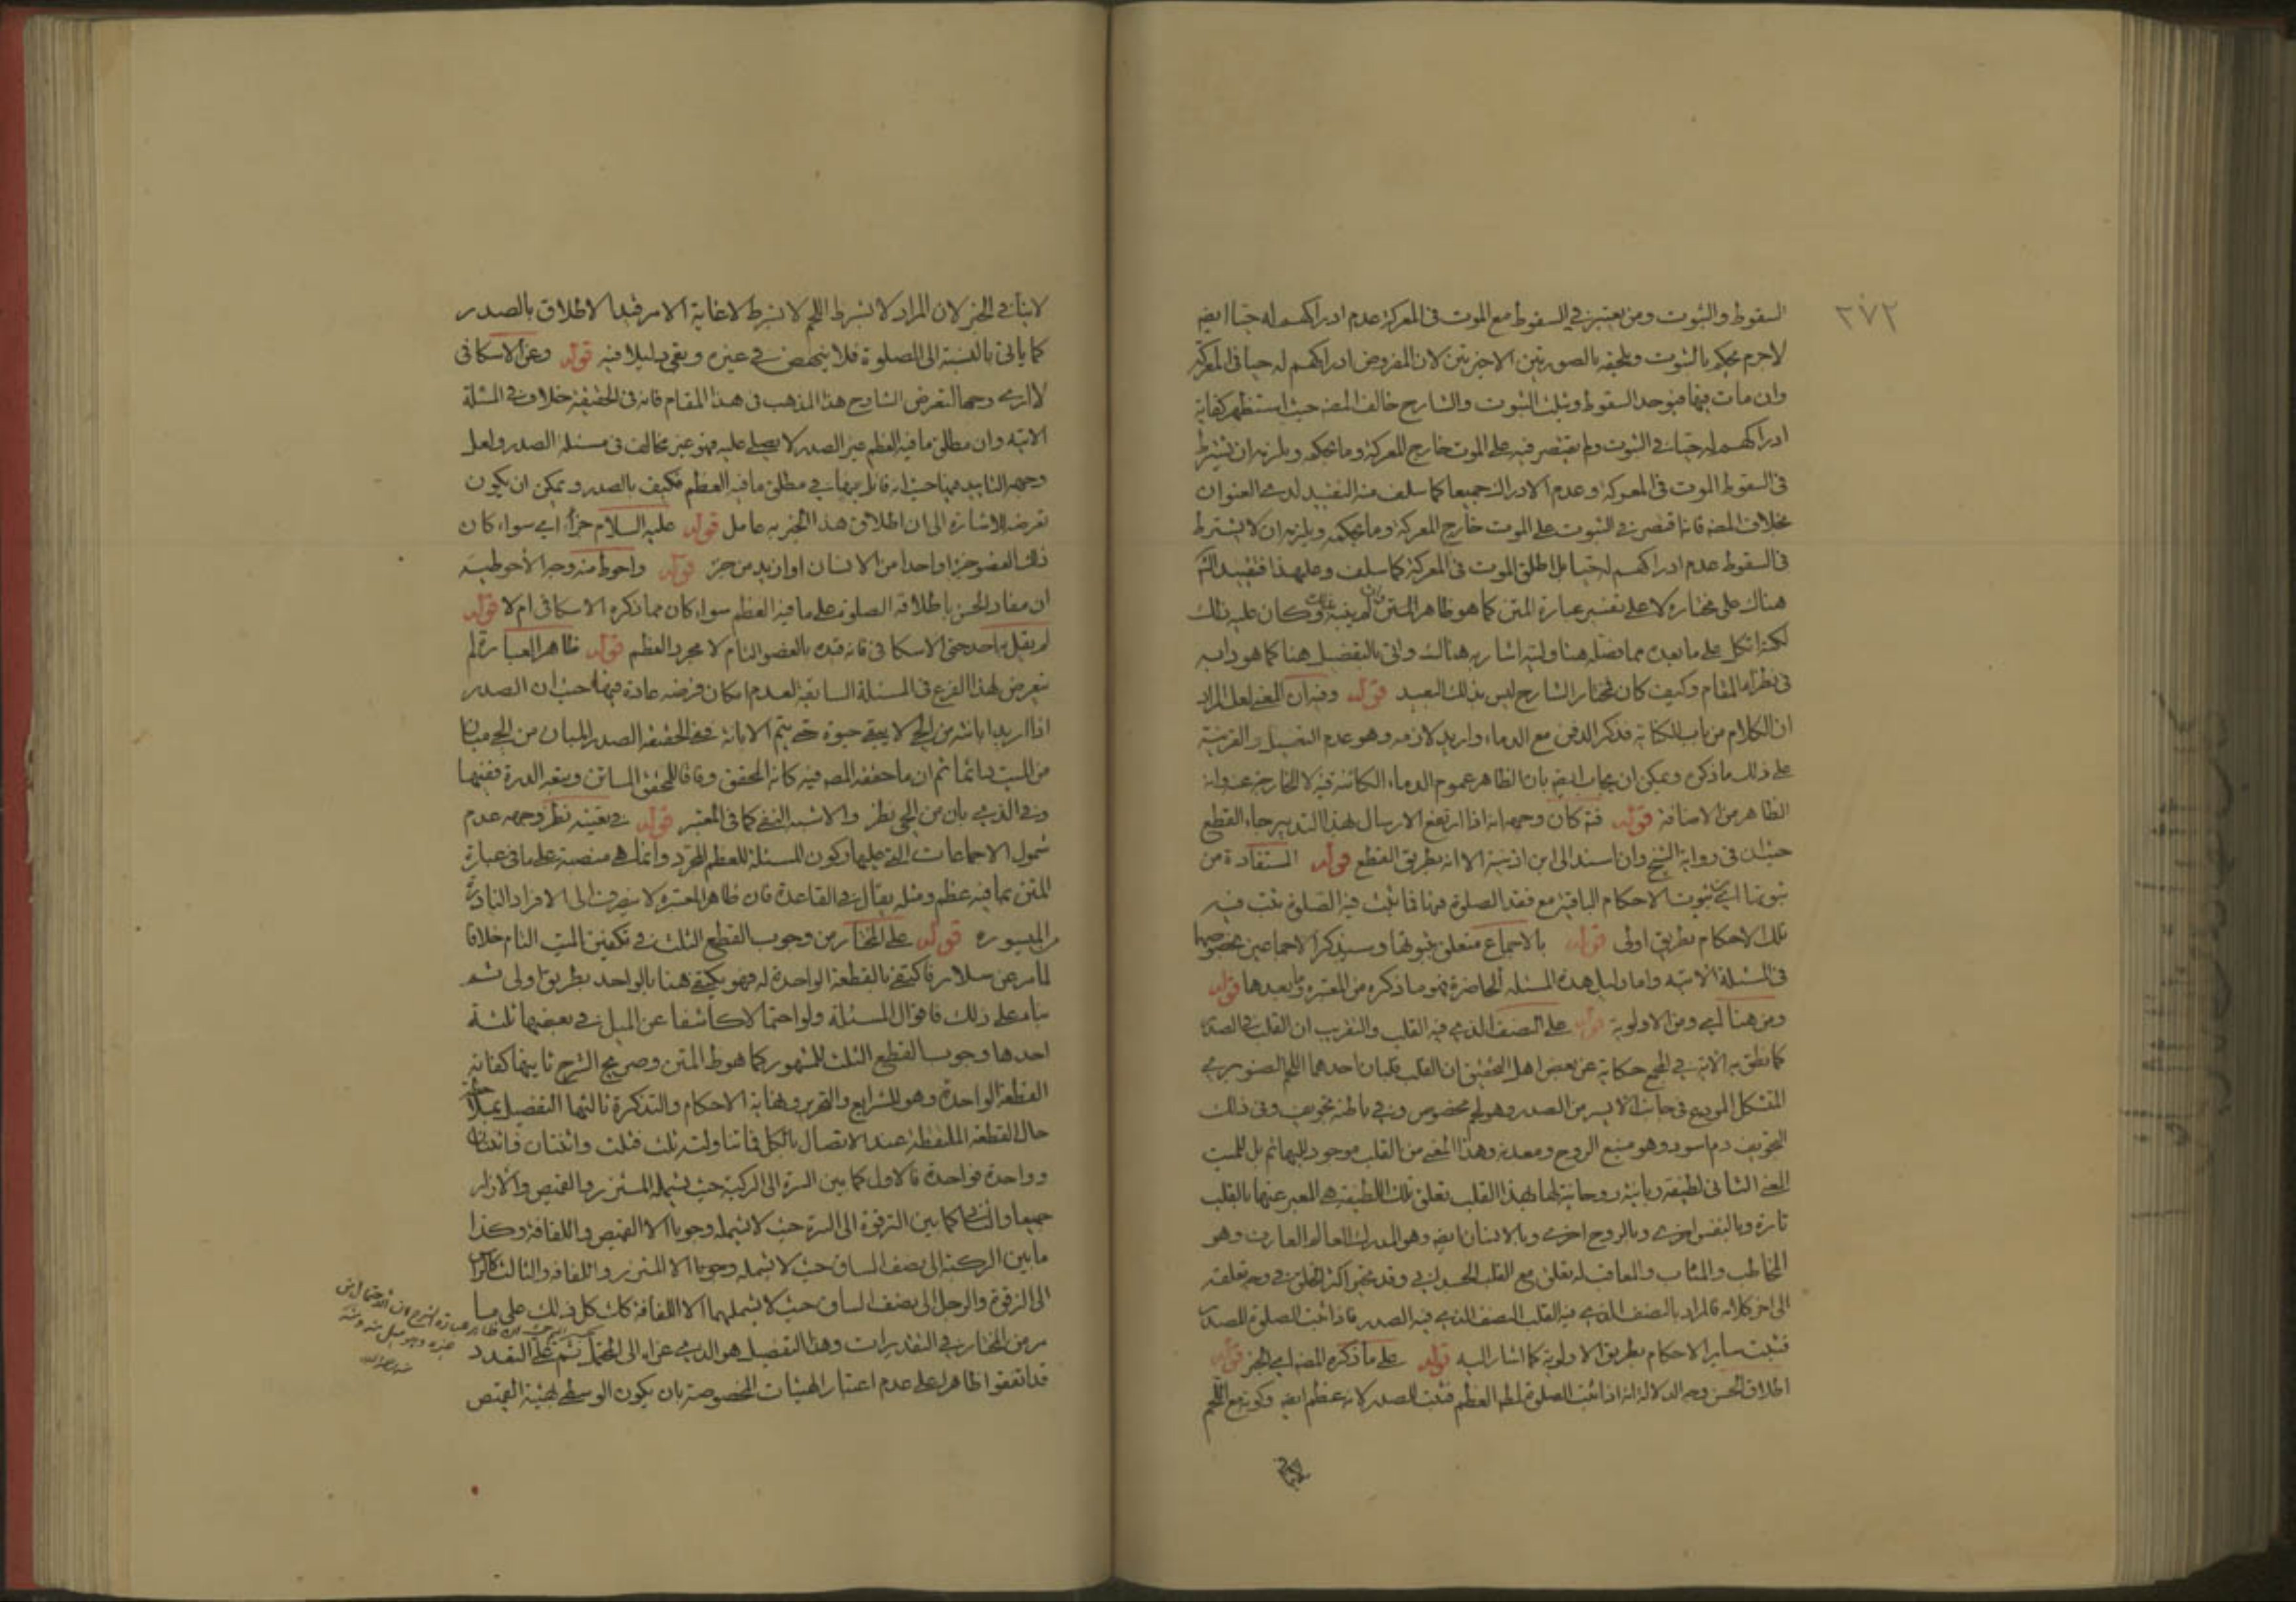 ٢٧٢
السقوط والثبوت ومن يعتبر في السقوط مع الموت في المعركة عدم ادراكهم له حيا ايضا
لاجرم يحكم بالثبوت ويلحقه بالصورتين الاخيرتين لان المفروض ادراكهم له حيا في المعركة
وان مات فيها فيوحد السقوط ويثلث الثبوت والشارح خالف المصـ حيث استظهر كفاية
ادراكهم له حيا في الثبوت ولم يقتصر فيه على الموت خارج المعركة وما بحكمه ويلزمه ان يشترط
في السقوط الموت في المعركة وعدم الادراك جميعا كما سلف منه التقييد لدى العنوان
بخلاف المصـ فانه اقتصر في الثبوت على الموت خارج المعركة وما بحكمه ويلزمه ان لا يشترط
في السقوط عدم ادراكهم له حيا بل اطلق الموت في المعركة كما سلف وعلى هذا فتقييد الشـ
هناك على مختاره لا على تفسير عبارة المتن كما هو ظاهر المتن وكان عليه ذلك
لكنه اتكل على ما بعده مما فصله هنا وليته اشار به هناك واتى بالتفصيل هنا كما هو دابه
في نظراء المقام وكيف كان فمختار الشارح ليس بذلك البعيد قوله وفيه ان المعنى لعل المراد
ان الكلام من باب الكناية فذكر الدفن مع الدماء واريد لازمه وهو عدم التغسيل والقرينة
على ذلك ما ذكره ويمكن ان يجاب ايضـ بان الظاهر عموم الدماء الكائنة فيه لا الخارجة عنه وانه
الظاهر من الاضافة قوله فتـ كان وجهه انه اذا ارتفع الارسال بهذا التدبير جاء القطع
حيث ان في رواية الشيخ وان اسند الى ابن اذينة الا انه بطريق القطع قوله المستفادة من
ثبوتها اي ثبوت الاحكام الباقية مع فقد الصلوة فيها فما ثبت فيه الصلوة ثبت فيه
تلك الاحكام بطريق اولى قوله بالاجماع متعلق بثبوتها وسيذكر الاجماعين بخصوصها
في المسئلة الاتيه واما دليل هذه المسئله الحاضرة فهو ما ذكره من المعتبرة وما بعدها قوله
ومن هنا اي ومن الاولوية قوله على النصف الذي فيه القلب والتقريب ان القلب في الصدر
كما نطق به الاية في المجمع حكاية عن بعض اهل التحقيق ان القلب قلبان احدهما اللحم الصنوبري
الشكل المودع في جانب الايسر من الصدر وهو لحم مخصوص وفي باطنه تجويف وفي ذلك
التجويف دم اسود وهو منبع الروح ومعدنه وهذا المعنى من القلب موجود للبهائم بل للميت
المعنى الثاني لطيفة ربانية روحانية لها بهذا القلب تعلق تلك اللطيفة هي المعبر عنها بالقلب
تارة وبالنفس اخرى وبالروح اخرى وبالانسان ايضـ وهو المدرك العالم العارف وهو
المخاطب والمثاب والمعاقب وله تعلق مع القلب الجسداني وقد تحير اكثر الخلق في وجه تعلقه
الى اخر كلامه فالمراد بالنصف الذي فيه القلب النصف الذي فيه الصدر فاذا ثبت الصلوة للصدر
فثبت ساير الاحكام بطريق الاولوية كما اشار اليه قوله على ما ذكره المصـ اي الخبر قوله
اطلاق الحسن وجه الدلالة انه اذا ثبت الصلوة لمطلق العظم فثبت للصدر لانه عظم ايضـ وكونه مع اللحم
لا ينافي الخبر لان المراد لا بشرط اللحم لا بشرط لا غاية الامر قيد الاطلاق بالصدر
كما ياتى بالنسبة الى الصلوة فلا ينهض في غيره وبقى دليلا فيه قوله وعن الاسكافى
لا ارى وجها لتعرض الشارح هذا المذهب فى هذا المقام فانه فى الحقيقة خلاف في المسئلة
الاتيه وان مطلق ما فيه العظم غير الصدر لا يصلى عليه فهو غير مخالف فى مسئلة الصدر ولعل
وجهه التاييد فيها حيث انه قائل بها في مطلق ما فيه العظم فكيف بالصدر ويمكن ان يكون
تعرضه للاشارة الى ان اطلاق هذا الخبر به عامل قوله عليه السلام جزأ اي سواء كان
ذلك العضو جزءا واحدا من الانسان او ازيد من جزء قوله واحوط منه وجه الأحوطية
ان مفاد الحسن باطلاقه الصلوة على ما فيه العظم سواء كان مما ذكره الاسكافى ام لا قوله
لم يقل به احد حتى الاسكافى فانه قيده بالعضو التام لا مجرد العظم قوله ظاهر العبارة لم
يتعرض لهذا الفرع فى المسئلة السابقة لعدم امكان فرضه عادة فيها حيث ان الصدر
اذا اريد ابانته من الحي لا يبقى حيوة حتى يتم الابانة ففى الحقيقة الصدر المبان من الحي مبان
من الميت دائما ثم ان ما حققه المصـ فيه كانه المحقق وفاقا للمحقق السابق وتبعه الدرة ففيها
وفي الذي بان من الحي نظر والاشبه النفي كما فى المعتبر قوله في تعينه نظر وجهه عدم
شمول الاجماعات التي عليها وكون المسئلة للعظم المجرد وانما هي منصبة على ما فى عبارة
المتن بما فيه عظم ومثله يقال فى القاعدة فان ظاهر المعتبره لا ينصرف الى الافراد النادرة
الميسوره قوله على المختار من وجوب القطع الثلث في تكفين الميت التام خلافا
لما مر عن سلار فاكتفى بالقطعة الواحدة له فهو يكتفى هنا بالواحد بطريق اولى ثم
بناء على ذلك فاقوال المسئلة ولو احتمالا كاشفا عن الميل في بعضها ثلثة
احدها وجوب القطع الثلث للمشهور كما هو ظـ المتن وصريح الشرح ثانيها كفاية
القطعة الواحدة وهو للشرايع والتحرير ونهاية الاحكام والتذكرة ثالثها التفصيل بملاحظة
حال القطعة الملتقطة عند الاتصال بالكل فما تناولته ثلث فثلث واثنتان فاثنتان
وواحدة فواحدة فالاول كما بين السرة الى الركبة حيث يشمله المئزر والقميص والازار
جميعا والثانى كما بين الترقوة الى السرة حيث لا يشمله وجوبا الا القميص واللفافة وكذا
ما بين الركبة الى نصف الساق حيث لا يشمله وجوبا الا المئزر واللفافة والثالث كالراس
الى الترقوة والرجل الى نصف الساق حيث لا يشملهما الا اللفافة كل ذلك على ما
مر من المختار في التقديرات وهذا التفصيل هو الذي عزاه الى المحتمل ثم على التعدد
قد اتفقوا ظاهرا على عدم اعتبار الهيئات المخصوصة بان يكون الوسطى لهيئة القميص